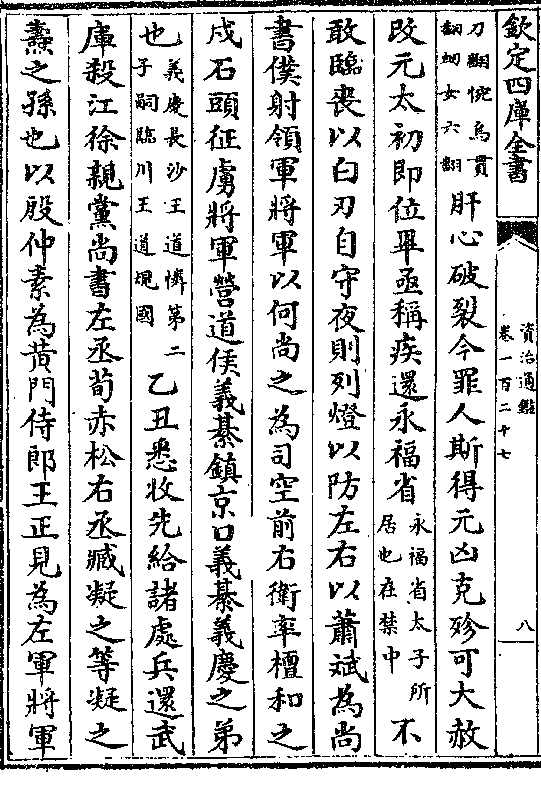 欽定四庫全書
資治通鑑
卷一百二十七
八
刃翻惋烏貫
翻衂女六翻
肝心破裂今罪人斯得元凶克殄可大赦
改元太初即位畢亟稱疾還永福省
永福省太子所
居也在禁中
不
敢臨喪以白刃自守夜則列燈以防左右以蕭斌為尚
書僕射領軍將軍以何尚之為司空前右衛率檀和之
戍石頭征虜將軍營道侯義綦鎮京口義綦義慶之弟
也
義慶長沙王道憐第二
子嗣臨川王道規國
乙丑悉收先給諸處兵還武
庫殺江徐親黨尚書左丞荀赤松右丞臧凝之等凝之
燾之孫也以殷仲素為黄門侍郎王正見為左軍將軍